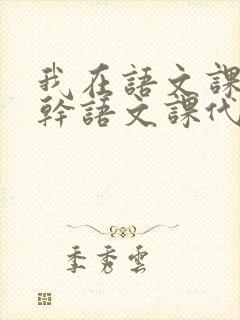 我在語文課
幹語文課代
季秀雲